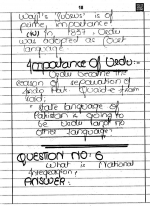 18
Wajj's "Yusus" is of
prime importance
(iv) In 1837, Urdu
was adopted as Court
language
Importance of Urdu:-
Urdu become the
reason of separation of
Indo Pak. Quaid-e-
said,
"State language of
Pakistan is going to
be Urdu and no
other language."
QUESTION NO: 6
What is National
Integration,
ANSWER: